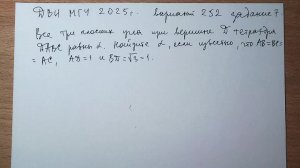 ДВИ МГУ 2025г. вариант 252 задание 7.
Все три плоских угла при вершине D тетраэдра
DABC равны α. Найдите α, если известно, что AB=BC=
=AC, AD=1 и BD=√3-1.